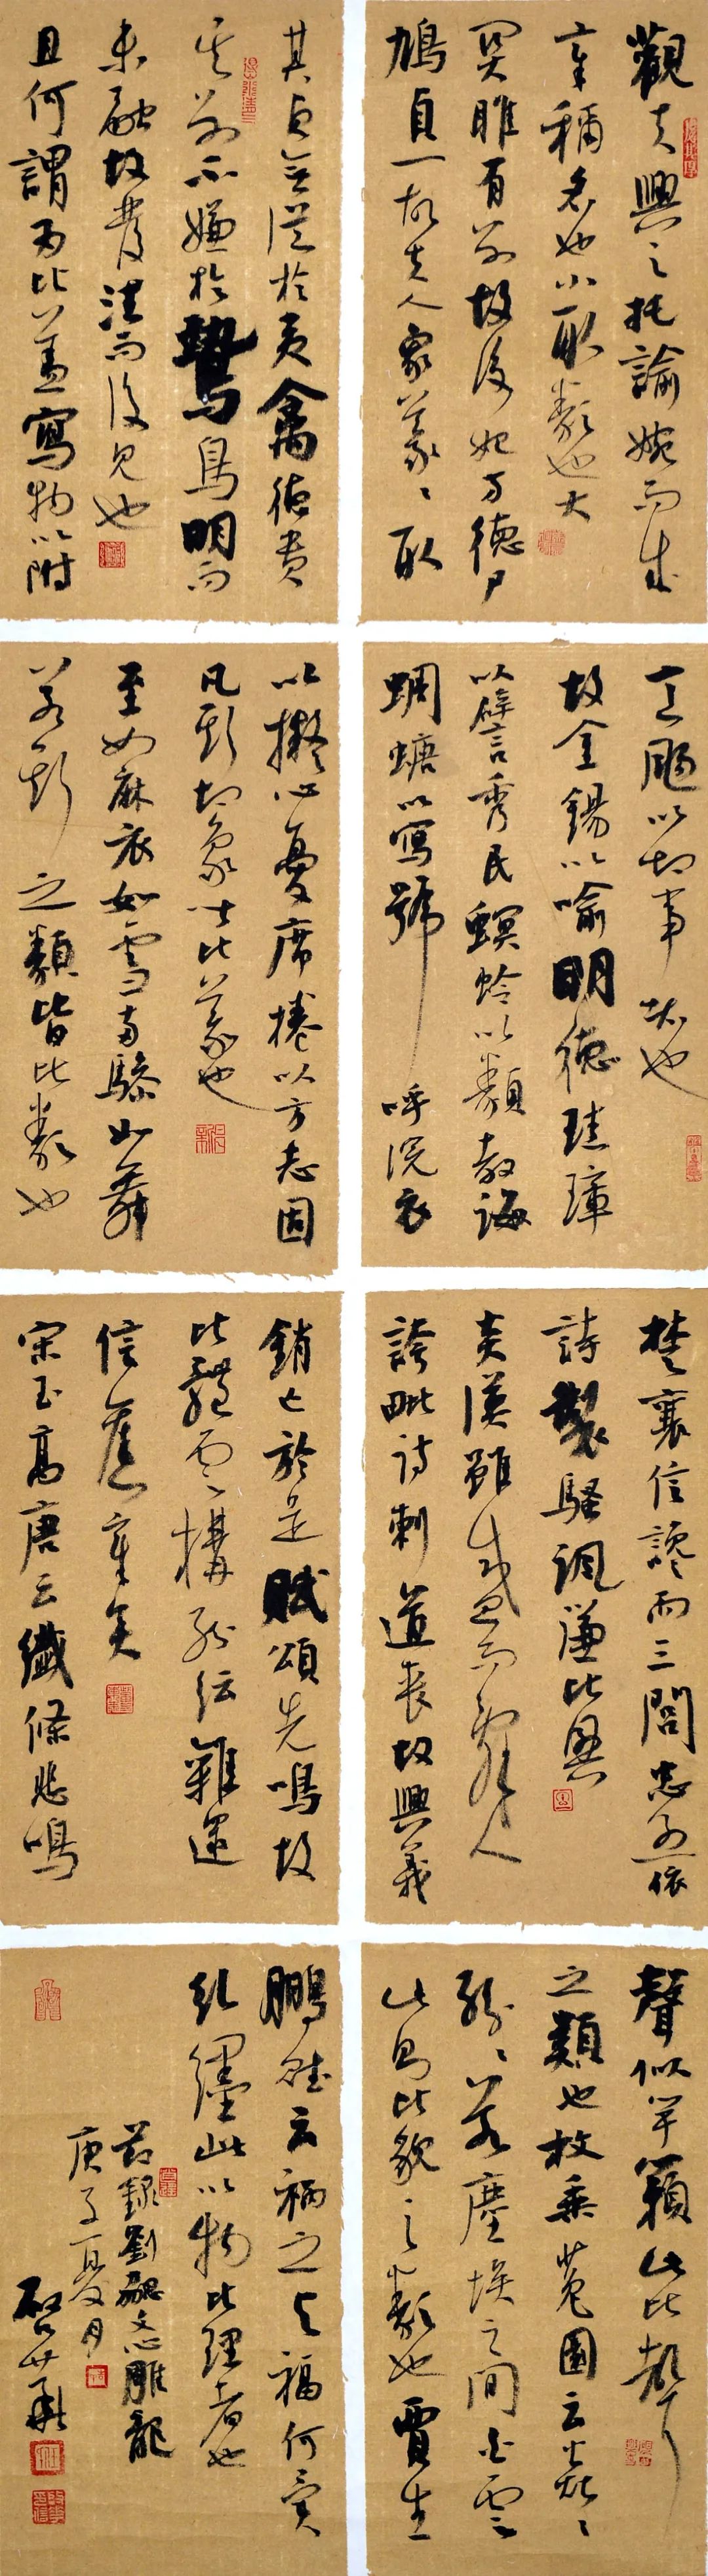 觀夫興之托諭婉而成
章稱名也小取類也大
關雎有別故后妃方德尸
鳩貞一故夫人象義義取
其貞無從於夷禽德貴
其別不嫌於鷙鳥明而
未融故發注而後見也
且何謂為比蓋寫物以附
意颺以切事者也
故金錫以喻明德珪璋
以譬秀民螟蛉以類教誨
蜩螗以寫號呼浣衣
以擬心憂席捲以方志固
凡斯切象皆比義也
至如麻衣如雪兩驂如舞
若斯之類皆比類也
楚襄信讒而三閭忠烈依
詩製騷諷謙比興
炎漢雖盛而辭人
誇毗詩刺道喪故興義
銷亡於是賦頌先鳴故
比體雲構紛紜雜遝
信舊章矣
宋玉高唐云纖條悲鳴
聲似竽籟此比聲
之類也枚乘菟園云焱焱
紛紛若塵埃之間白雲
此則比貌之類也賈生
鵬賦云禍之與福何異
糾纆此以物比理者也
節錄劉勰文心雕龍
庚子夏月